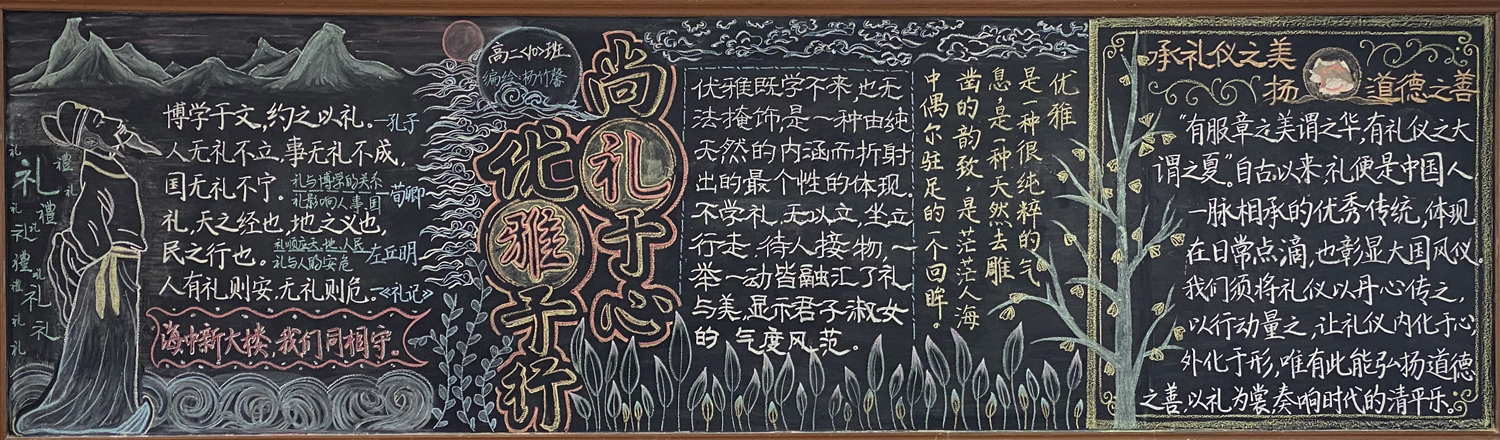 博学于文,约之以礼。—孔子
人无礼不立,事无礼不成,
国无礼不宁。
礼与博学的关系
礼影响人事国
—荀卿
礼,天之经也,地之义也,
民之行也。
礼顺应天、地、人民
礼与人的安危
左丘明
人有礼则安,无礼则危。—《礼记》
海中新大楼,我们同相守。
礼
礼
禮
礼
礼
禮
礼
礼
禮
礼
禮
礼
礼
礼
礼
高二<10>班
编绘:杨竹馨
尚礼于心
优雅于行
优雅既学不来,也无
法掩饰,是一种由纯
天然的内涵而折射
出的最个性的体现。
不学礼,无以立,坐立
行走,待人接物,一
举一动皆融汇了礼
与美,显示君子淑女
的气度风范。
优雅
是一种很纯粹的气
息,是一种天然去雕
凿的韵致,是茫茫人海
中偶尔驻足的一个回眸。
承礼仪之美
扬道德之善
“有服章之美谓之华,有礼仪之大
谓之夏。”自古以来,礼便是中国人
一脉相承的优秀传统,体现
在日常点滴,也彰显大国风仪。
我们须将礼仪以丹心传之,
以行动量之,让礼仪内化于心,
外化于形,唯有此能弘扬道德
之善以礼为裳,奏响时代的清平乐。